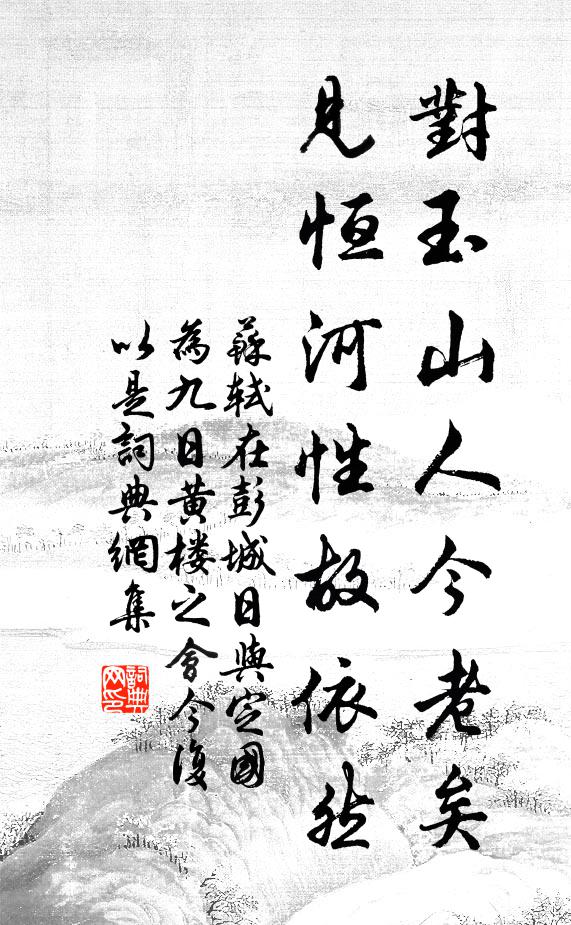 對玉山人今老矣
見恒河性故依然
蘇軾在彭城日與定國
為九日黃楼之會今復
以是詞典網集
詞典
网印